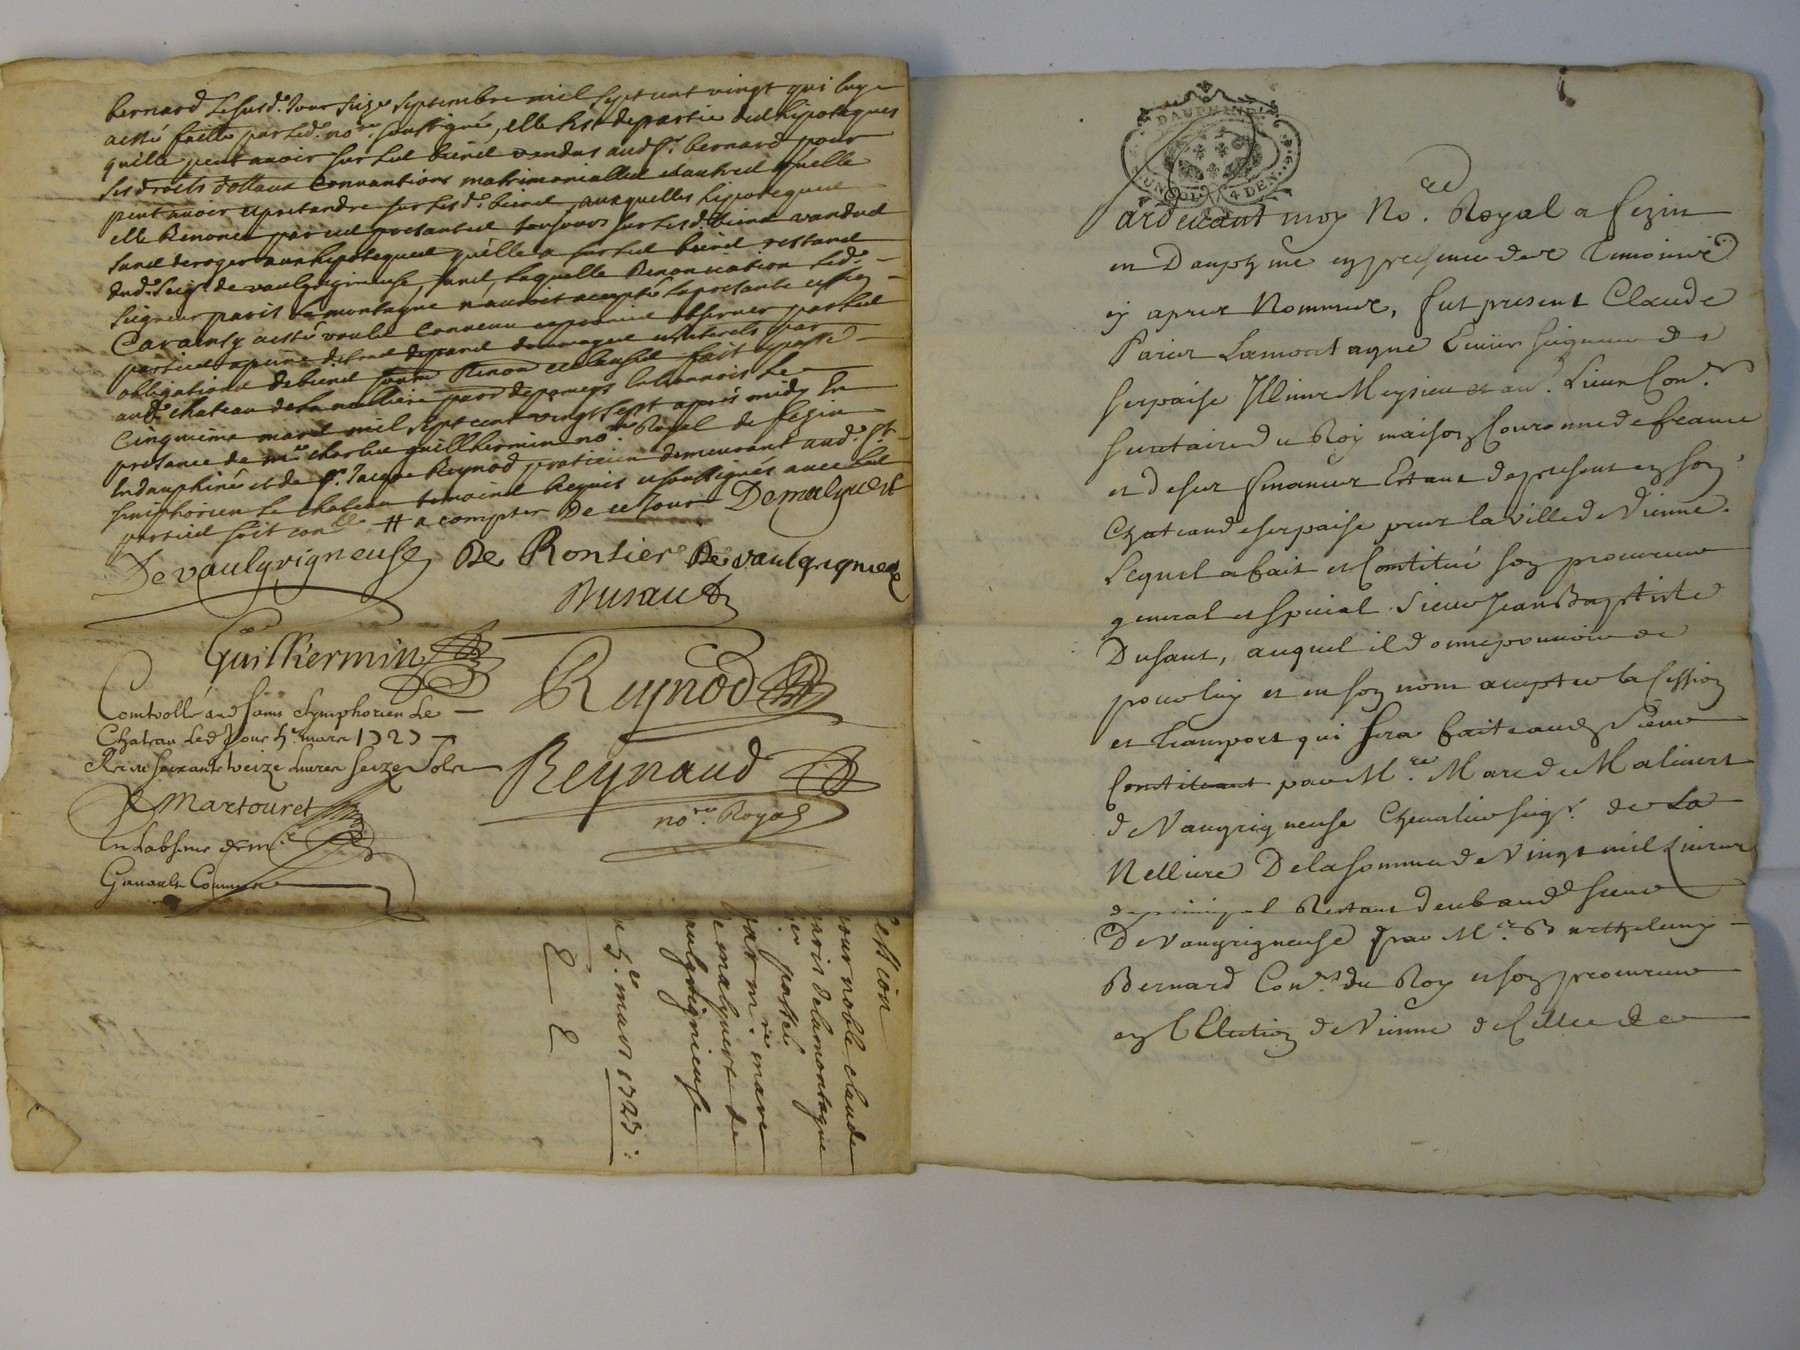 bernard le susd.t Jour seize septembre mil sept cent vingt qui luy
a esté faitte par led.t no.re soussigné, elle sest departie des hipoteques
quelle peut avoir sur les biens vendus aud s.r bernard pour
ses droits dottaux Convantions matrimonialles et autres quelle
peut avoir et pretandre sur lesd.s biens, ausquelles hipoteques
elle Renonce par ces presantes tousjours sur lesd. biens vandus
sans deroger aux hipoteques quelle a sur les biens restans
dud. seig.r de vaulgrigneuse, sans laquelle Renonciation led.
seigneur paris lamontagne n'auroit accepté la presante cession
Car ainsy a esté voulu Convenu et promis observer par les
parties a peine de tous depans dommages et interets par
obligations de biens Renon et clauses fait et passé
aud. chateau de la nelliere par de Lionnois le
Cinquieme mars mil sept cent vingt sept apres midy En
presance de m.e charles guilhermin no.re Royal de fezin
En dauphiné et de s.r Jacque Reynod praticien demeurant aud. s.t
simphorien le chateau temoins Requis et soussignés avec les
parties soit con.lle # a compter De ce Jour Demalyvert
De vaulgrigneuse De Ronsier De vaulgrigneuse
Dusaut
Guilhermin
Reynod
Comtrollé aud saint Symphorien Le
Chateau Led Jour 5.e mars 1727
R. soixante treize Livres seize sols
Reynaud
no.re Royal
Martouret
En Labsence de m.e
Ganault Commis
Cession
pour noble claude
paris de la montagne
s.r perse
par m.re marc
de malyvert de
vaulgrigneuse
du 5.e mars 1727 :
E E
DAUPHINE
UN SOL 4 DEN.
Pardevant moy No.re Royal a fezin
en Dauphiné en presence des Temoins
cy apres Nommés, fut present Claude
Paris Lamontagne Ecuier seigneur de
serpaise Illins Meysieu et au.s Lieux Con.er
secretaire du Roy maison Couronne de france
et de ses finances Estant de present en son
Chateau de serpaise prez la ville de Vienne.
Lequel a fait et Constitué son procureur
general et special. Sieur Jean Baptiste
Dusaut, auquel il donne pouvoir de
pour luy et en son nom accepter la cession
et transport qui sera faite aud Sieur
Constituant par M.re Marc de Malivert
de Vaugrigneuse Chevalier seig.r de La
Nelliere De la somme de Vingt mil Livres
de principal Restant deub aud Sieur
De Vaugrigneuse par M.e Barthelemy
Bernard Con.er du Roy et son procureur
en l'Election de Vienne de Celle de